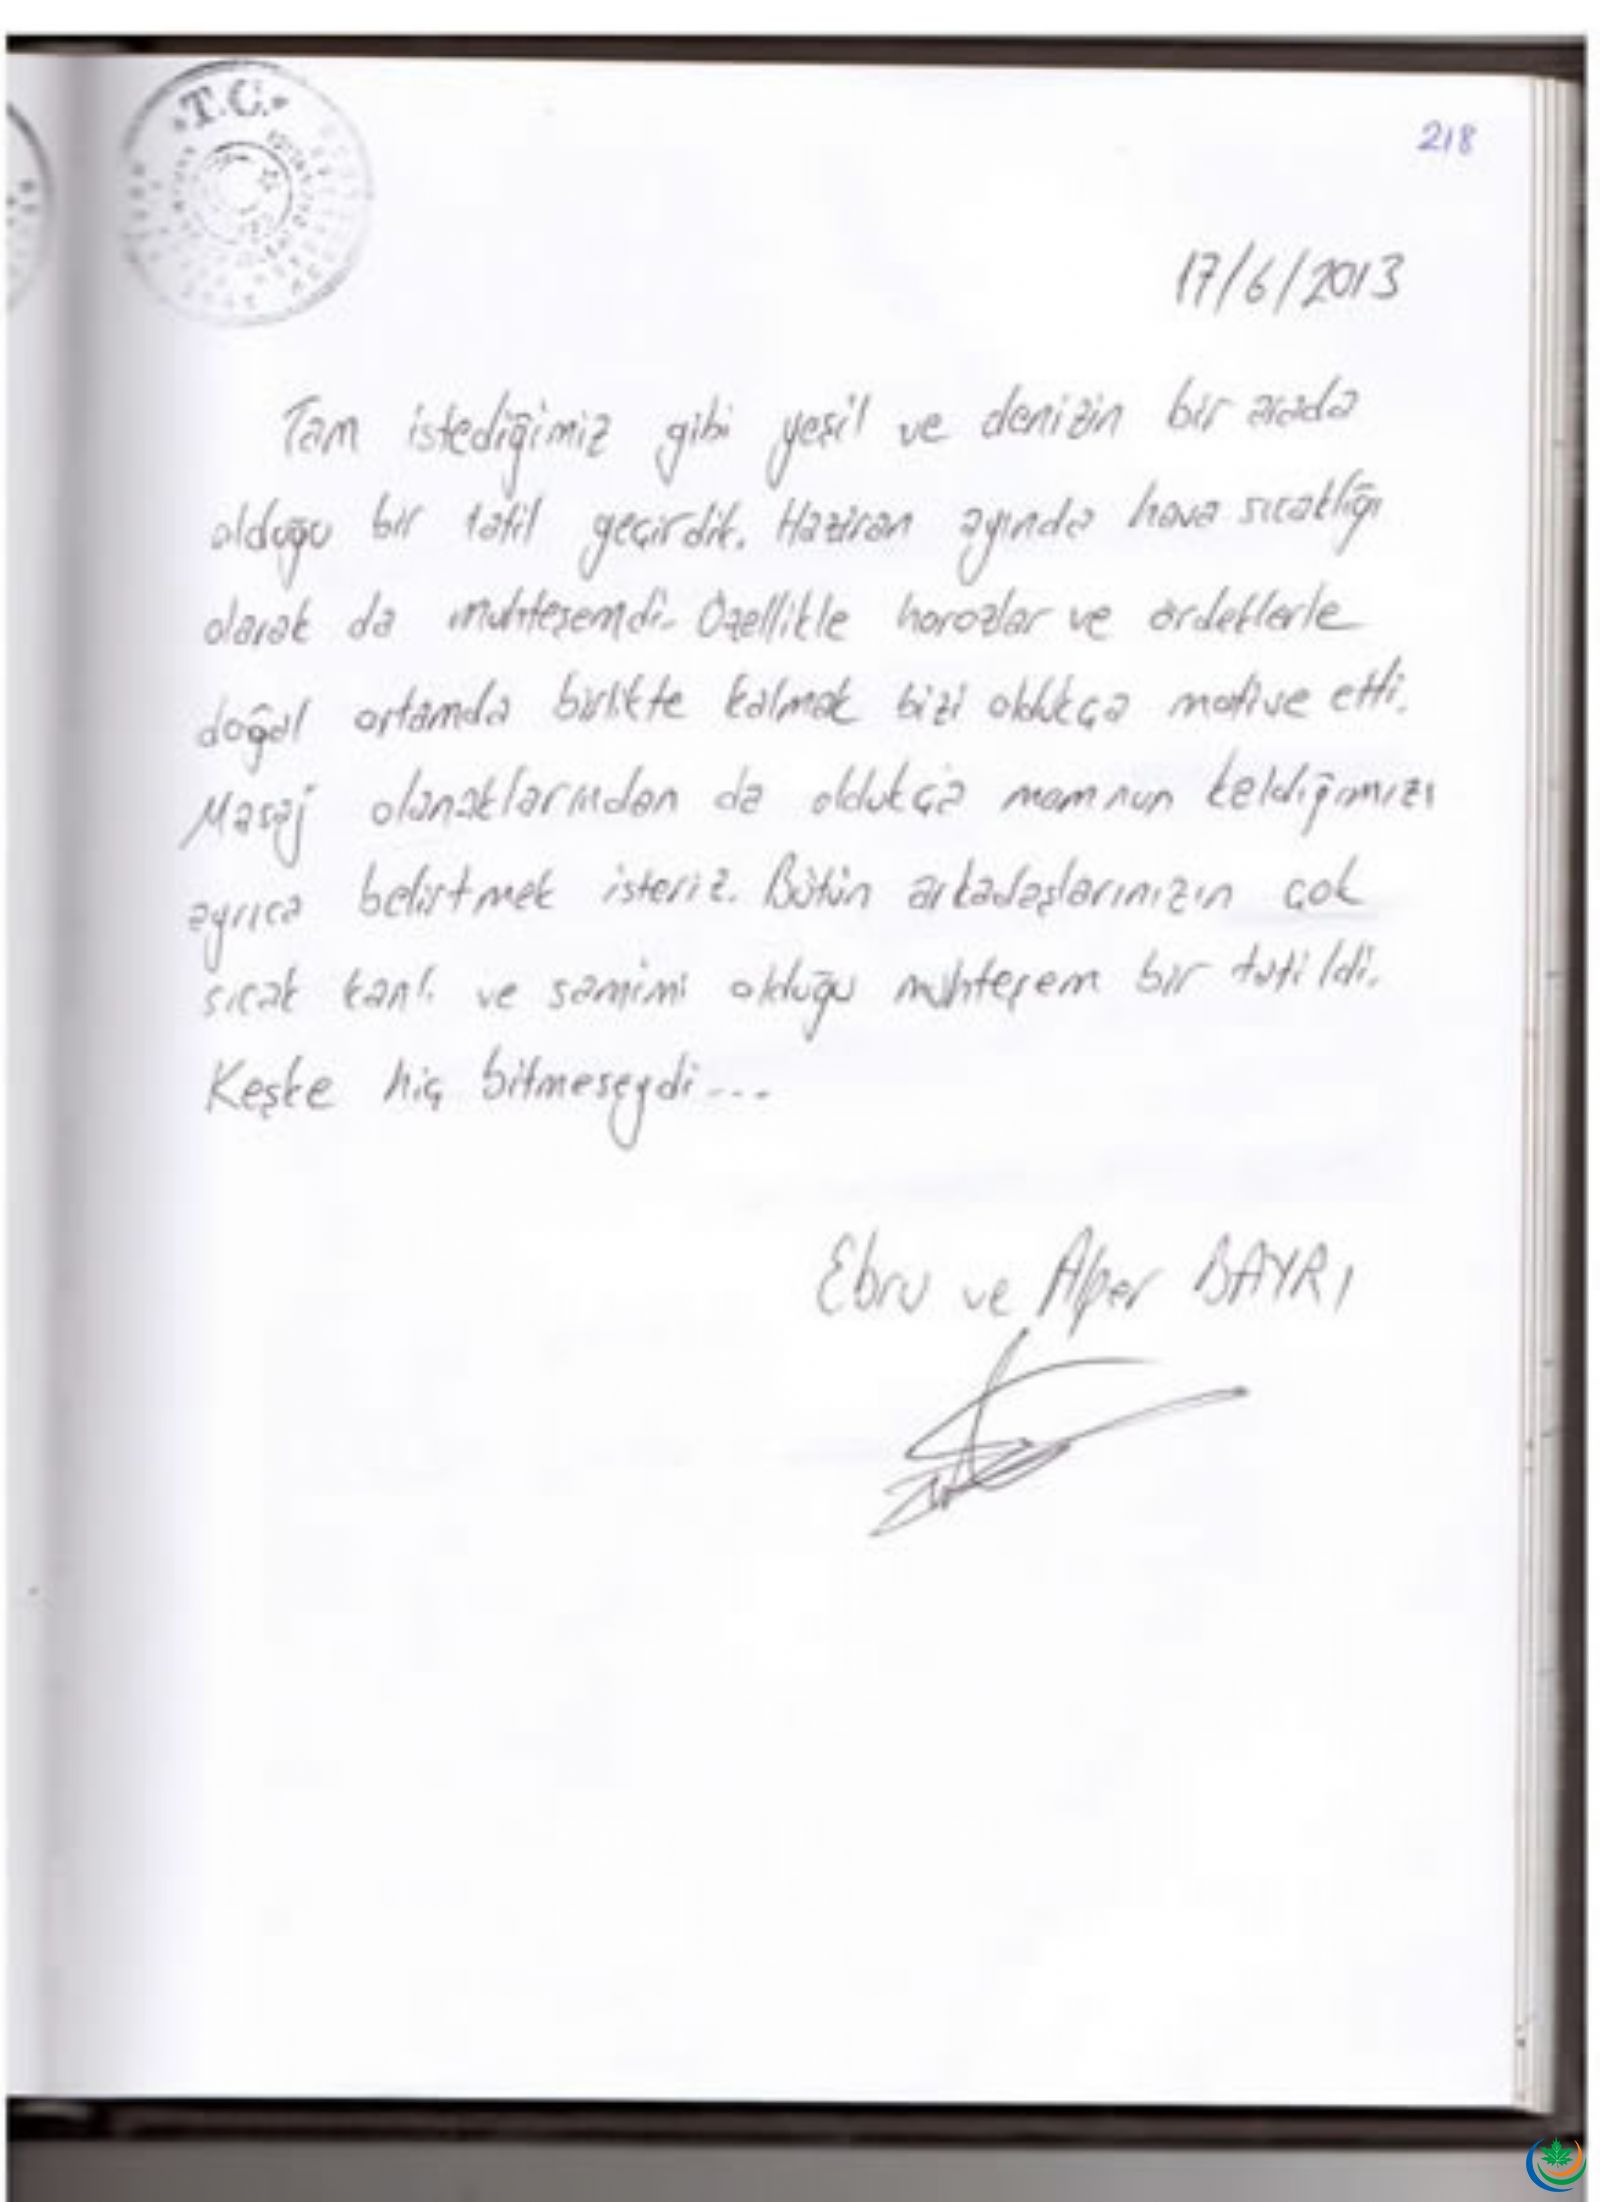 T.C.
218
17/6/2013
Tam istediğimiz gibi yeşil ve denizin bir arada
olduğu bir tatil geçirdik. Haziran ayında hava sıcaklığı
olarak da muhteşemdi. Özellikle horozlar ve ördeklerle
doğal ortamda birlikte kalmak bizi oldukça motive etti.
Masaj olanaklarından da oldukça memnun kaldığımızı
ayrıca belirtmek isteriz. Bütün arkadaşlarınızın çok
sıcak kanlı ve samimi olduğu muhteşem bir tatildi.
Keşke hiç bitmeseydi...
Ebru ve Alper BAYRI